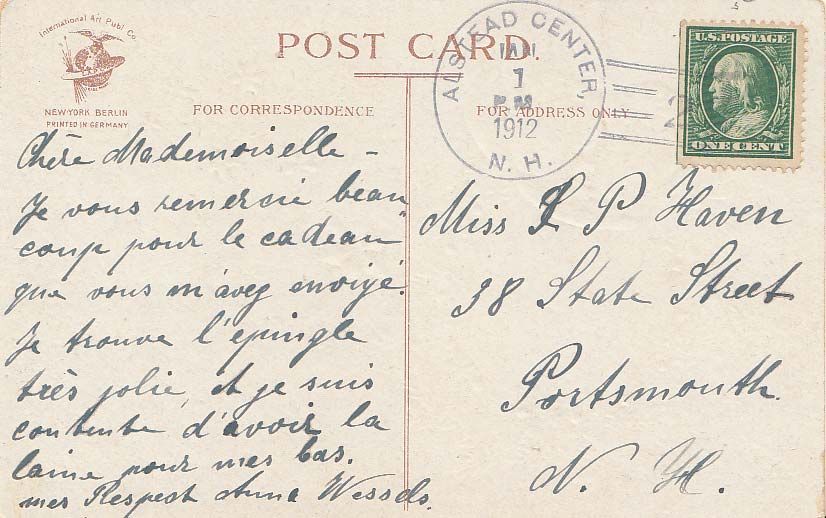 International Art Publ. Co.
NEW-YORK BERLIN
PRINTED IN GERMANY
POST CARD.
FOR CORRESPONDENCE
FOR ADDRESS ONLY
ALSTEAD CENTER,
JAN
1
PM
1912
N. H.
U.S. POSTAGE
ONE CENT
Chère Mademoiselle –
Je vous remercie beau"
coup pour le cadeau
que vous m'aveg envoyé.
Je trouve l'epingle
très jolie, et je suis
contente d'avoir la
laine pour mes bas.
mes Respect Anna Wessels.
Miss L P Haven
38 State Street
Portsmouth.
N. H.